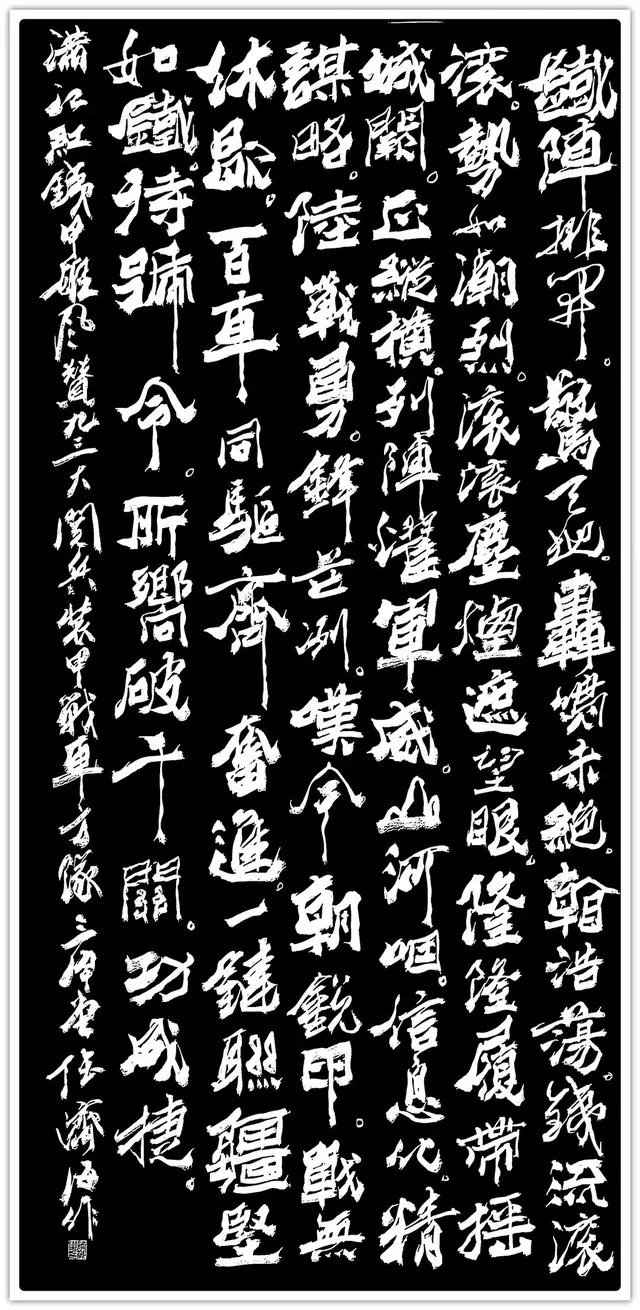 鐵陣排開。驚天地。轟未絕。浩蕩。鐵流滾
滾。勢如潮烈。滾滾塵煙遮望眼。隆隆履帶搖
城闕。正縱橫列陣灌軍威。山河咽。信息化。精
謀略。陸戰勇。鋒芒冽。嘆今朝銳甲。戰無
休歇。百車同驅齊奮進。一鏈聯疆堅
如鐵。待號令。所嚮破千關。功成捷。
滿江紅鐵甲雄風贊九三大閱兵裝甲戰車方隊任濟海作